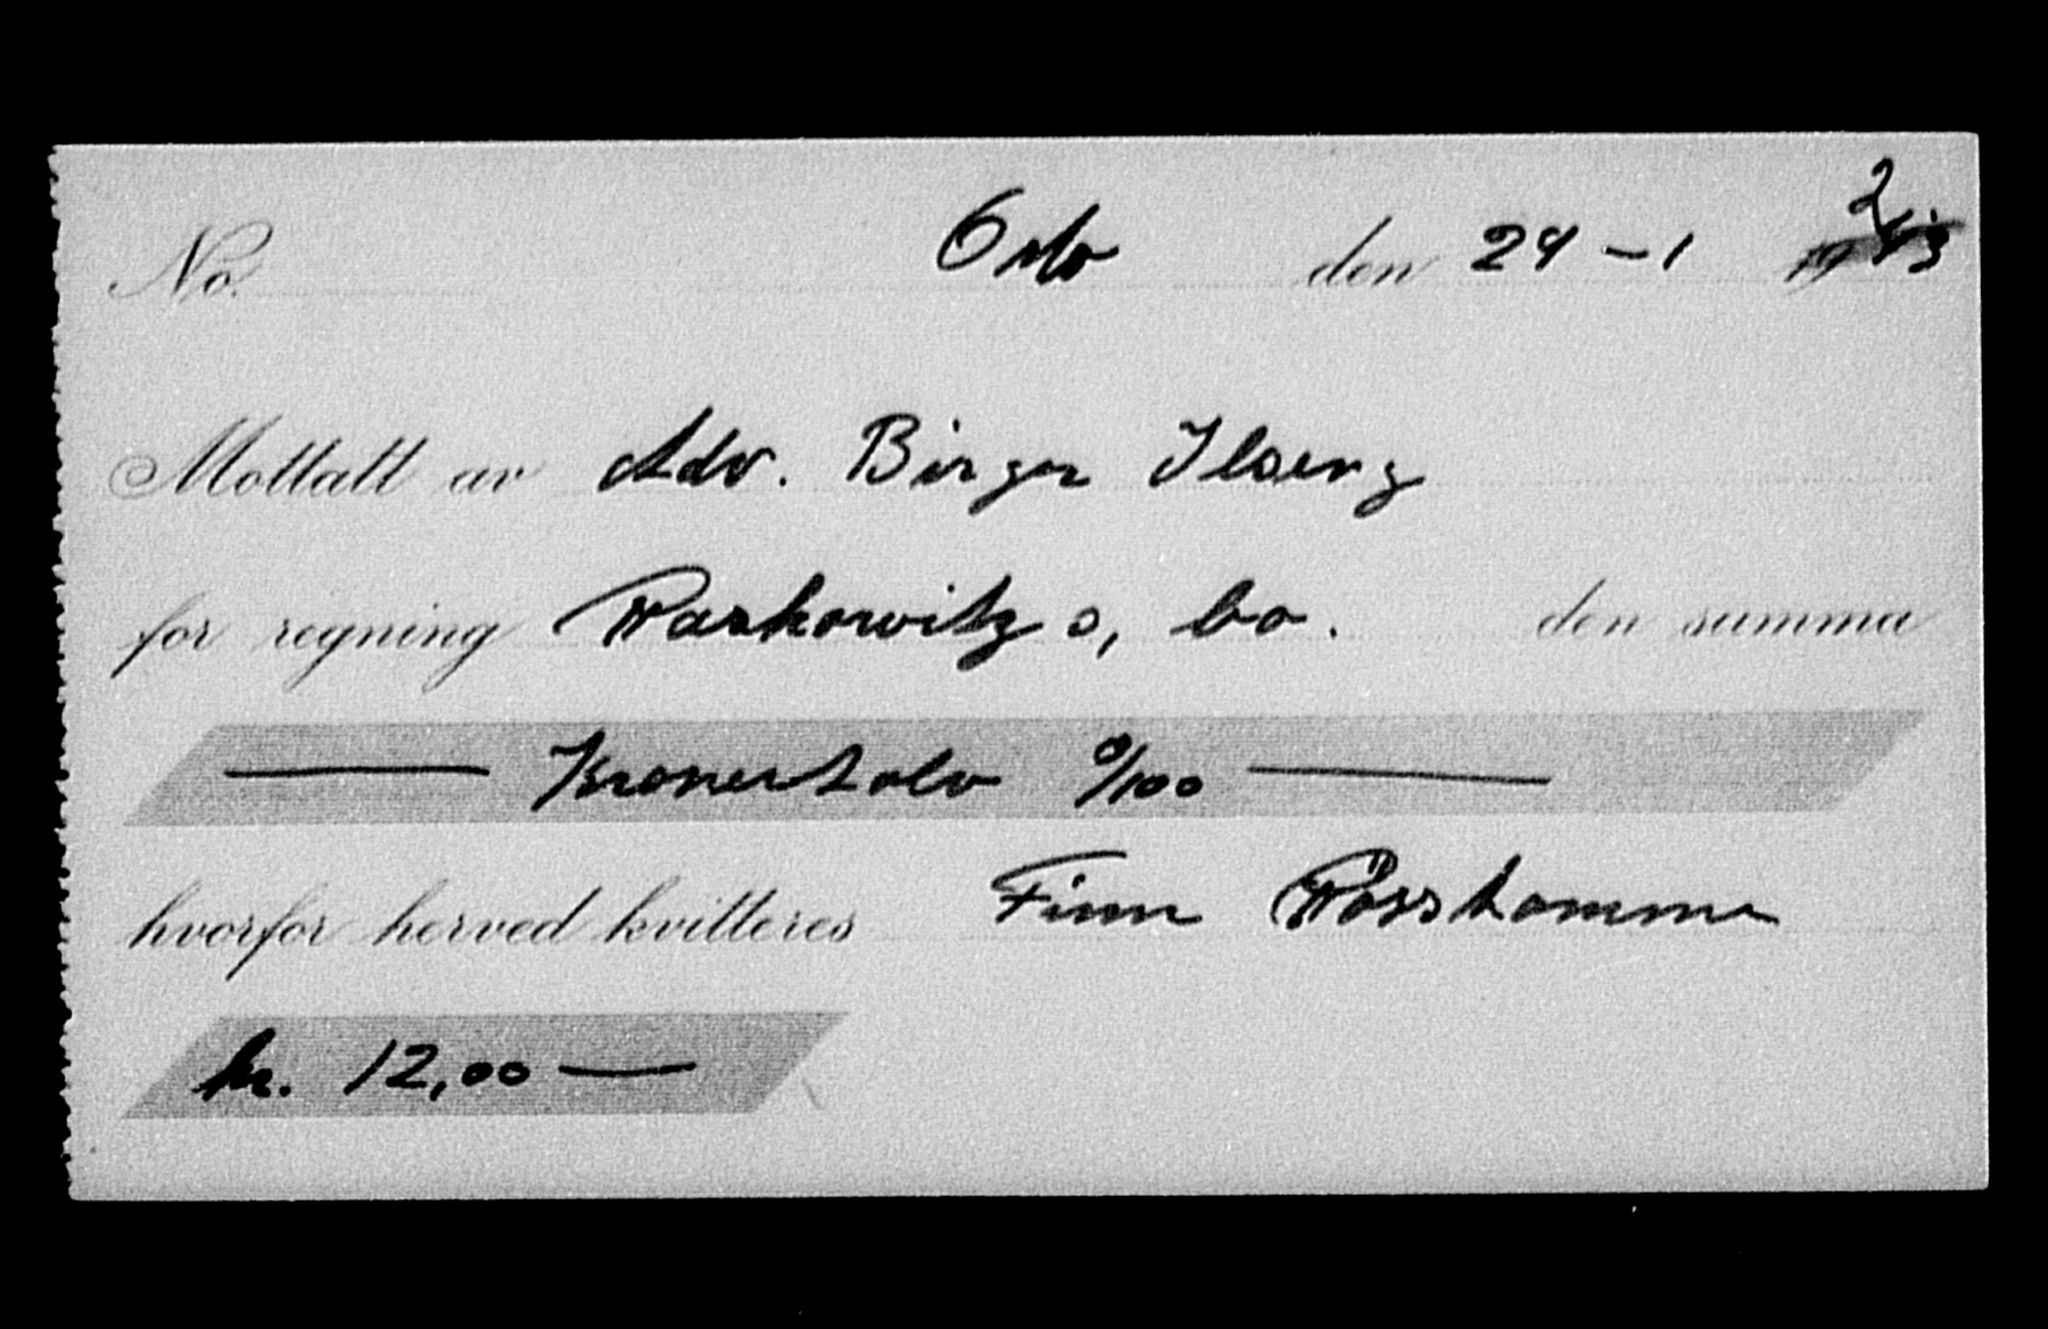 2
No. Oslo den 24 - 1 1943
Mottatt av Adv. Birger Ilseng
for regning Raskowitz s, bo. den summa
Kroner tolv 0/100
hvorfor herved kvitteres Finn
kr. 12,00